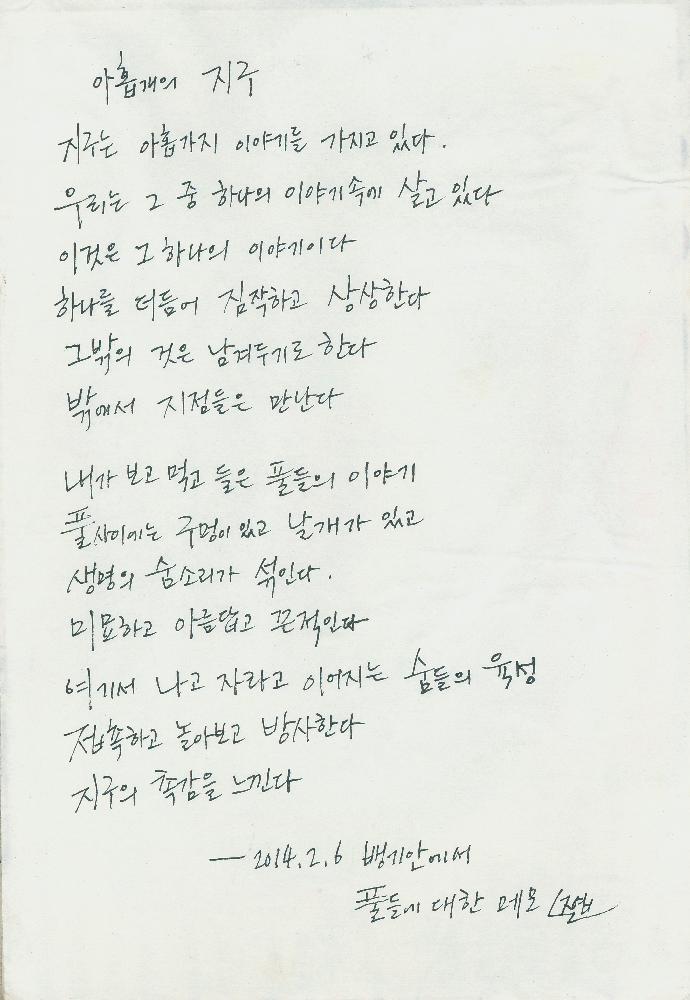 아홉개의 지구
지구는 아홉가지 이야기를 가지고 있다.
우리는 그 중 하나의 이야기속에 살고 있다
이것은 그 하나의 이야기이다
하나를 더듬어 짐작하고 상상한다
그밖의 것은 남겨두기로 한다
밖에서 지점들은 만난다
내가 보고 먹고 들은 풀들의 이야기
풀사이에는 구멍이 있고 날개가 있고
생명의 숨소리가 섞인다.
미묘하고 아름답고 끈적인다
여기서 나고 자라고 이어지는 숨들의 육성
접촉하고 놀아보고 방사한다
지구의 촉감을 느낀다
— 2014.2.6 뱅기안에서
풀들에 대한 메모